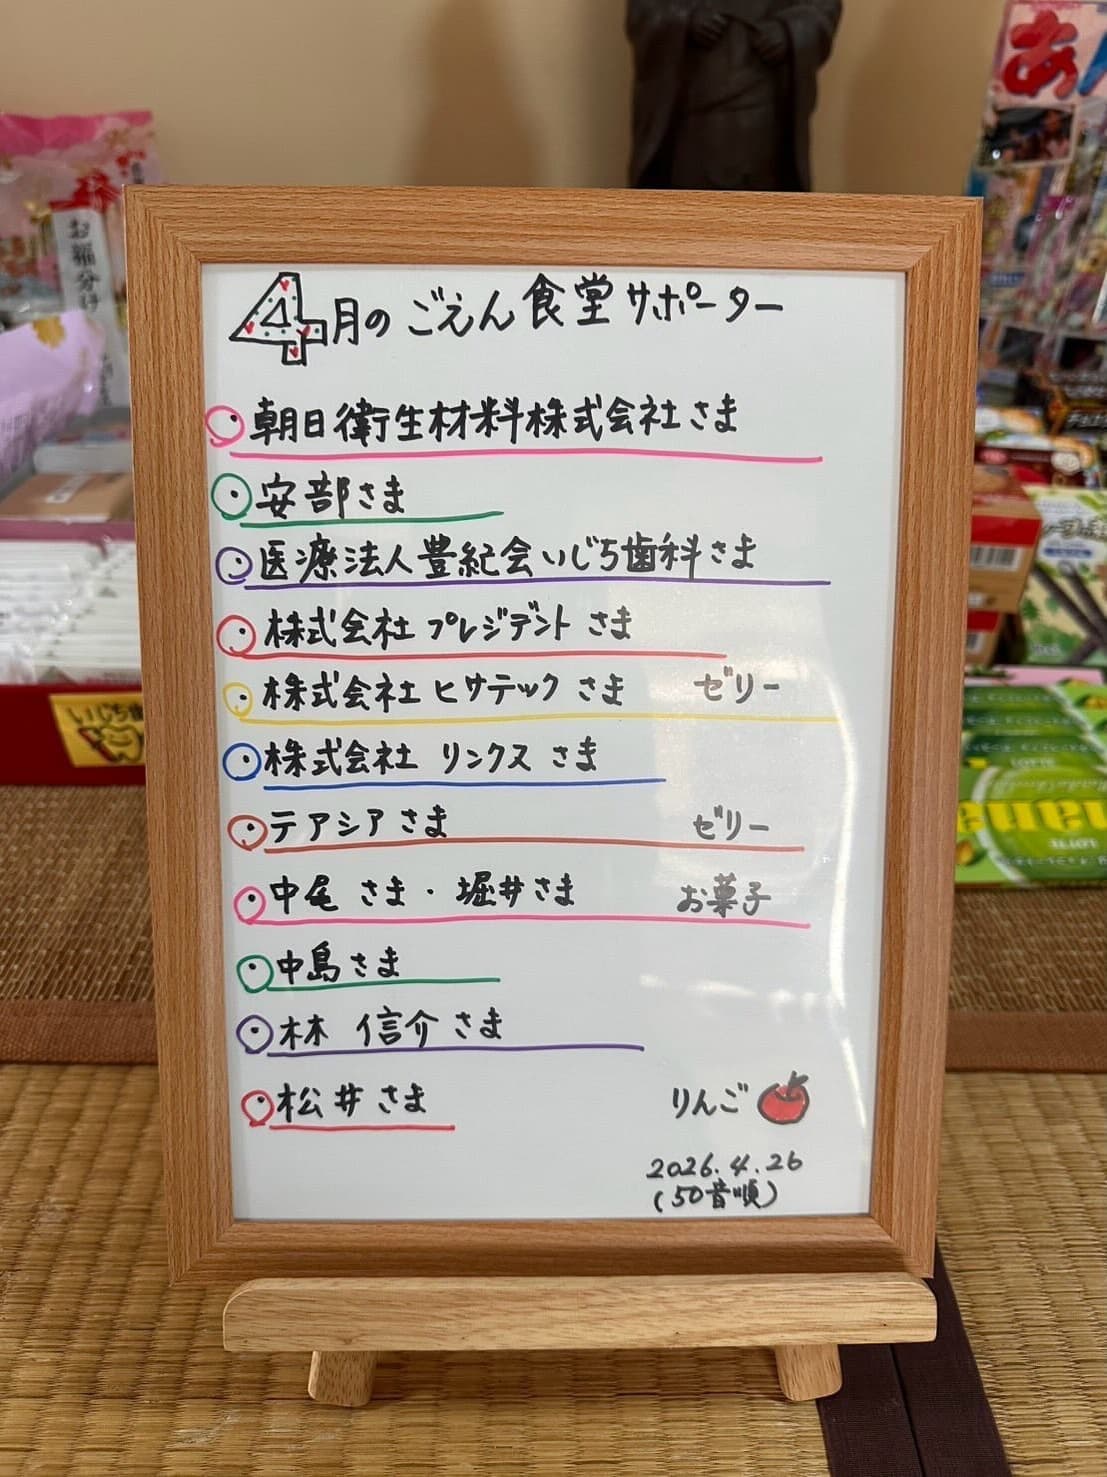 4月のごえん食堂サポーター
朝日衛生材料株式会社さま
安部さま
医療法人豊紀会いじち歯科さま
株式会社プレジデントさま
株式会社ヒサテックさま ゼリー
株式会社リンクスさま
テアシアさま ゼリー
中尾さま・堀井さま お菓子
中島さま
林 信介さま
松井さま りんご
2026.4.26
(50音順)
お福分け
いじち歯
あん
LOTTE